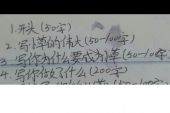 1.开头(50字)
2.写小草的伟大(50-100字)
3.写你为什么要成为小草(50-100字
4.写你做了什么(200字)